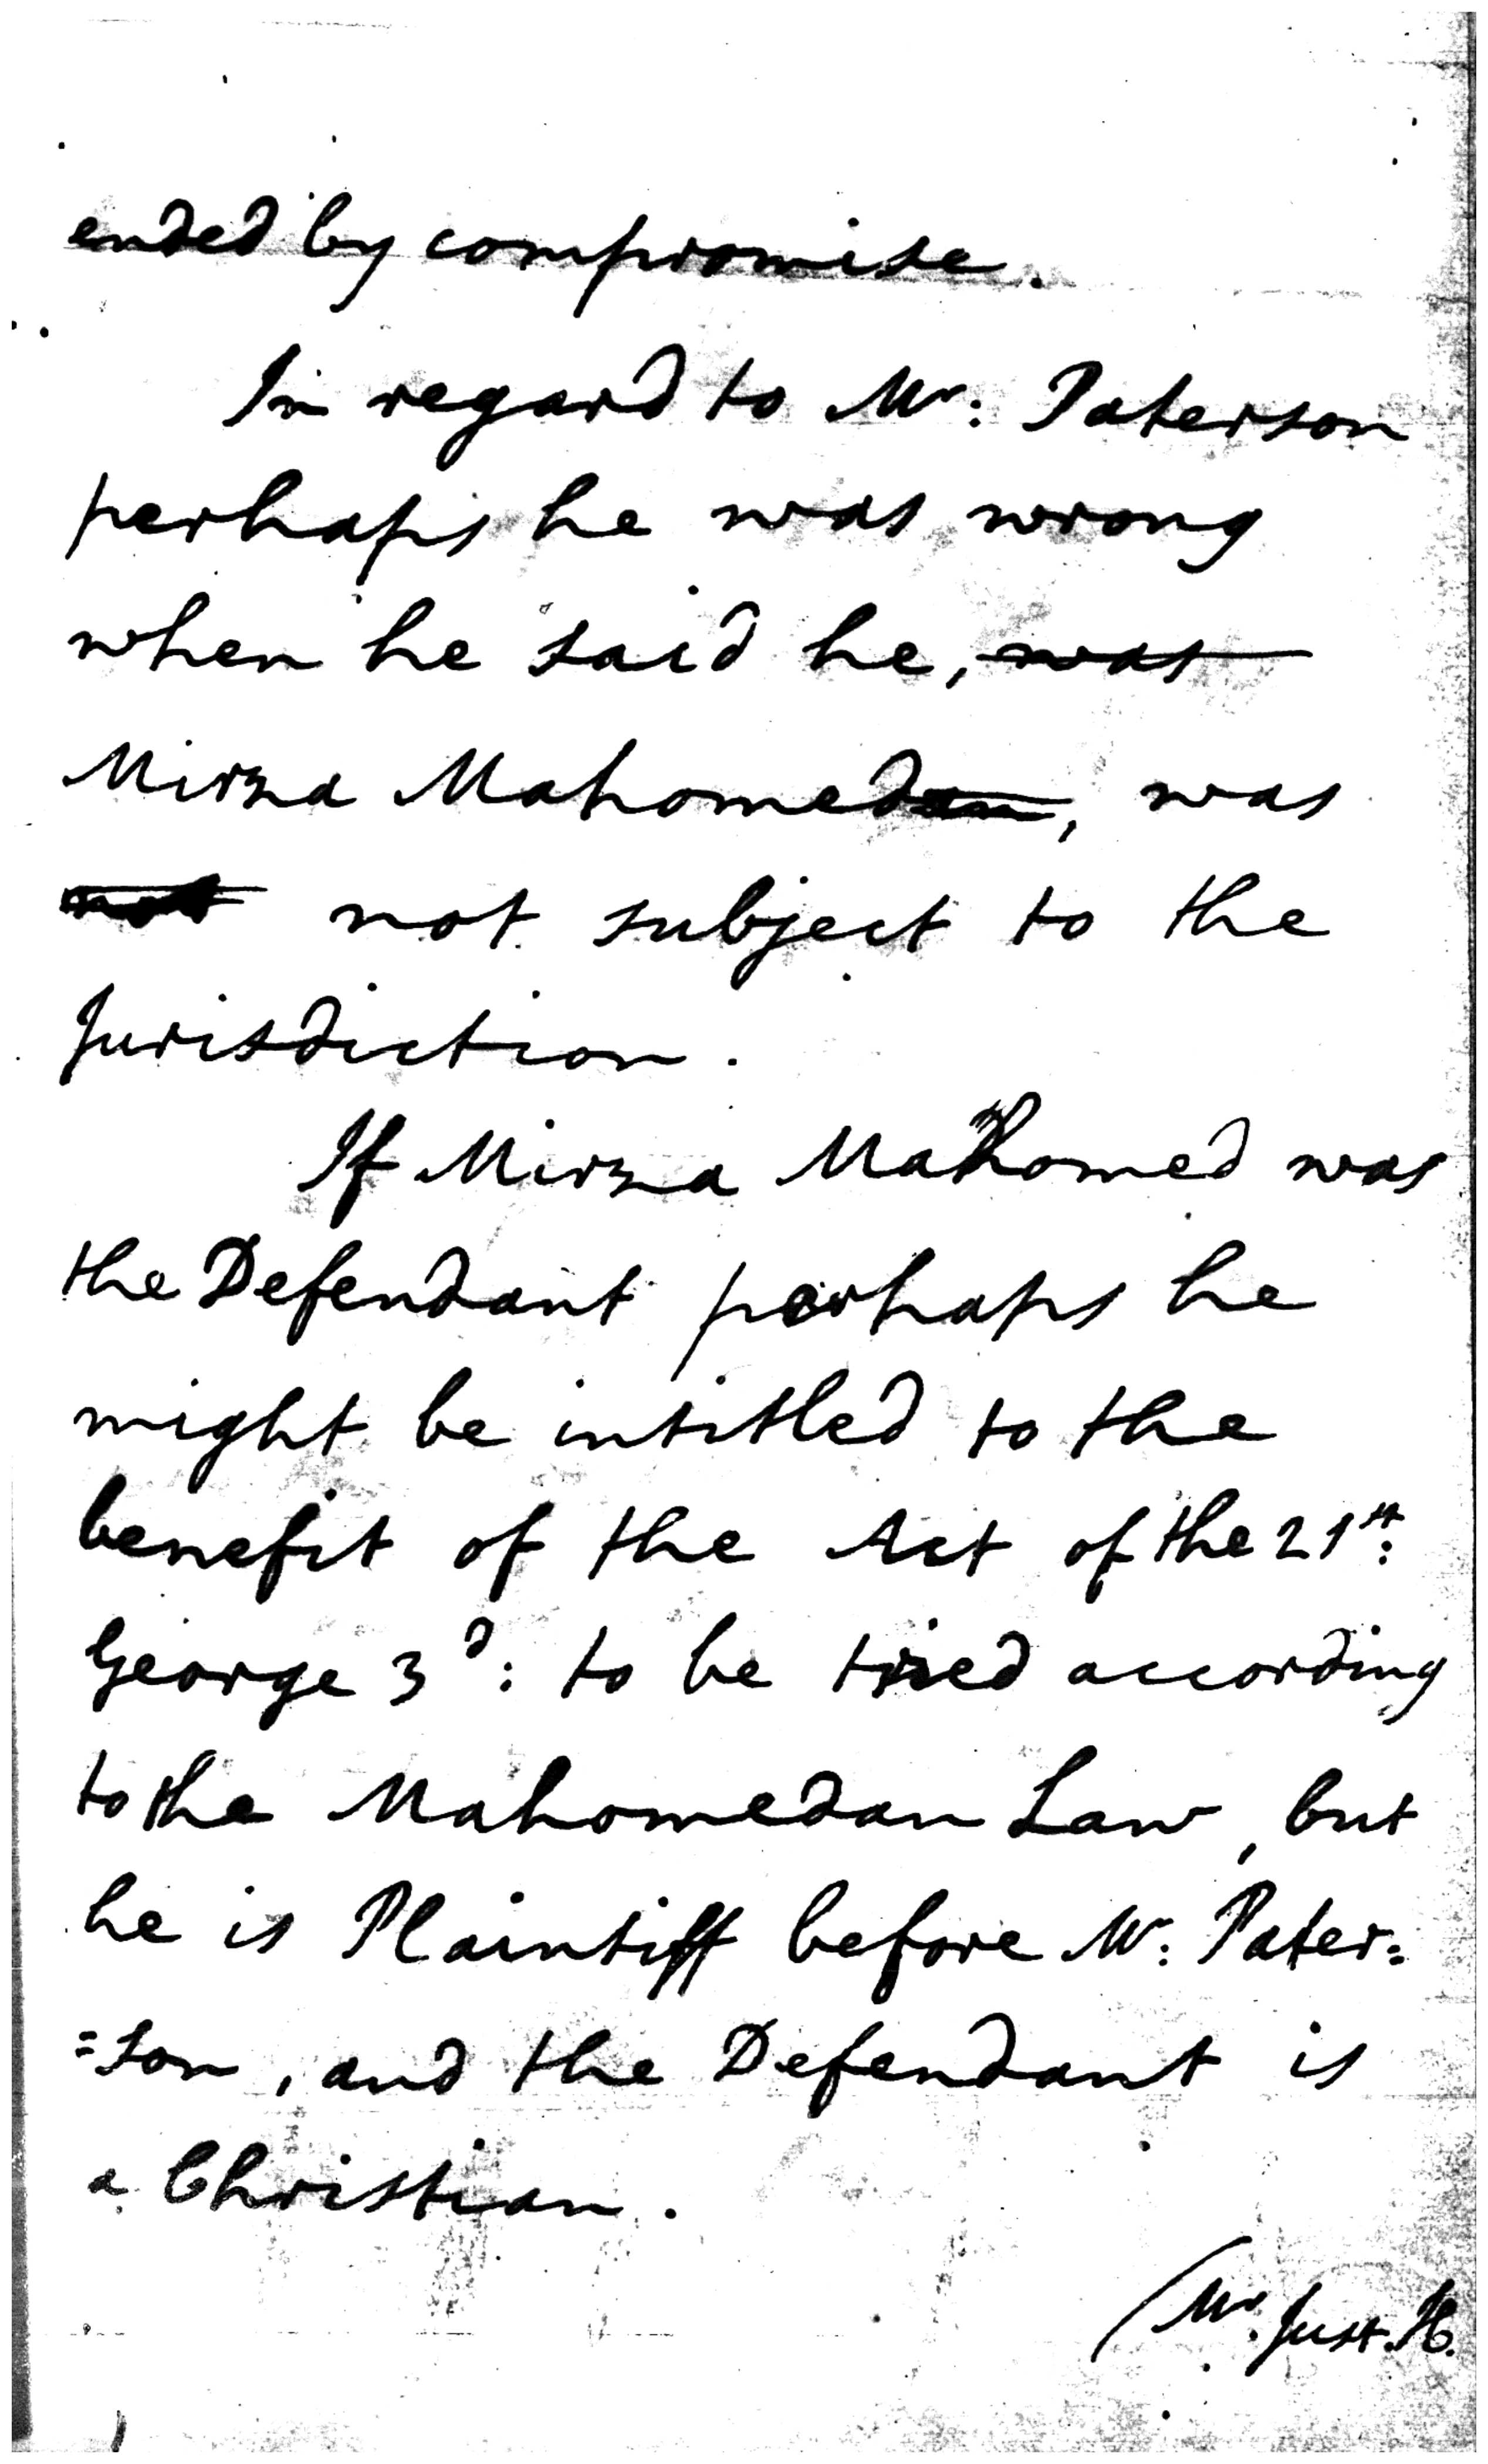 ended by compromise.
In regard to Mr: Paterson
perhaps he was wrong
when he said he, ~~was~~
Mirza Mahomed~~an~~, was
~~not~~ not subject to the
Jurisdiction.
If Mirza Mahomed was
the Defendant perhaps he
might be intitled to the
benefit of the Act of the 21st:
George 3d: to be tried according
to the Mahomedan Law, but
he is Plaintiff before Mr: Pater=
=son, and the Defendant is
a Christian.
(Mr. Just. H.